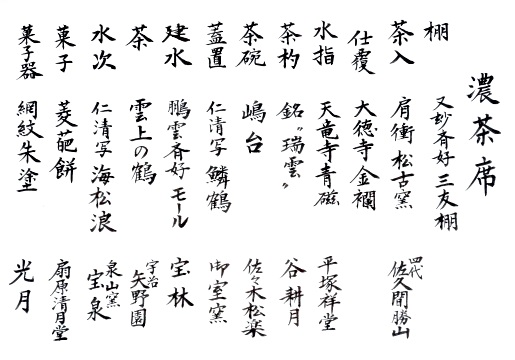 濃茶席
棚 又玅斉好 三友棚
茶入 肩衝 松古窯 四代 佐久間勝山
仕覆 大徳寺金襴
水指 天竜寺青磁 平塚祥堂
茶杓 銘〝瑞雲〟 谷耕月
茶碗 嶋台 佐々木松楽
蓋置 仁清写 鱗鶴 御室窯
建水 鵬雲斉好 モール 宝林
茶 雲上の鶴 宇治 矢野園
水次 仁清写 海松浪 泉山窯 宝泉
菓子 菱葩餅 扇原清月堂
菓子器 網紋朱塗 光月